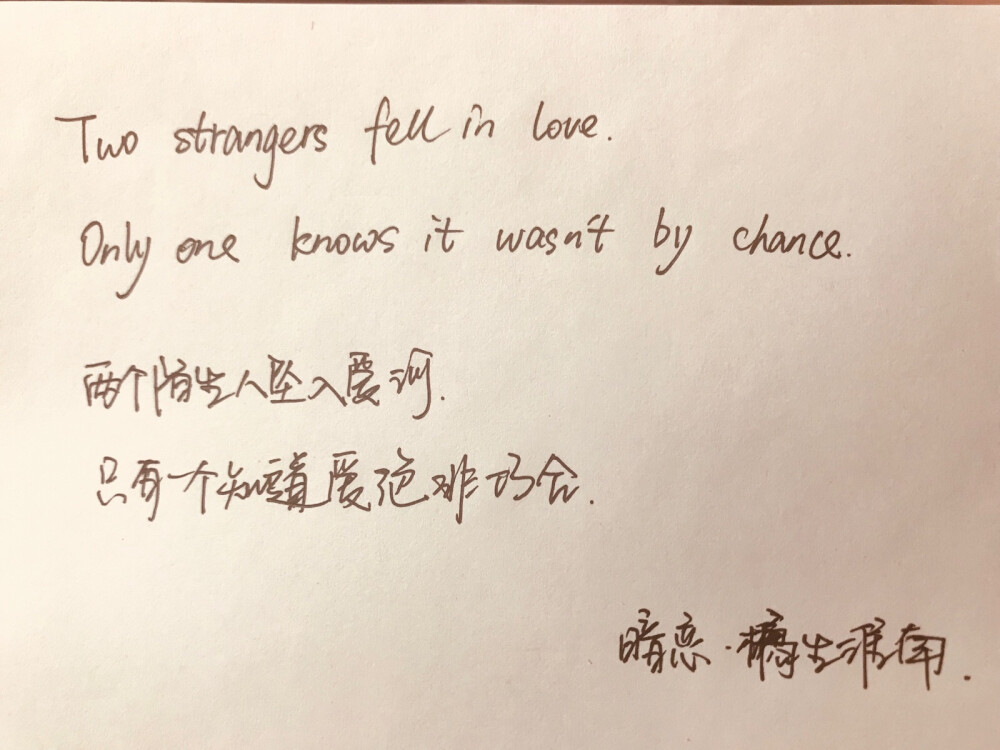 Two strangers fell in love.
Only one knows it wasn't by chance.
两个陌生人坠入爱河.
只有一个知道爱绝非巧合.
暗恋·橘生淮南.